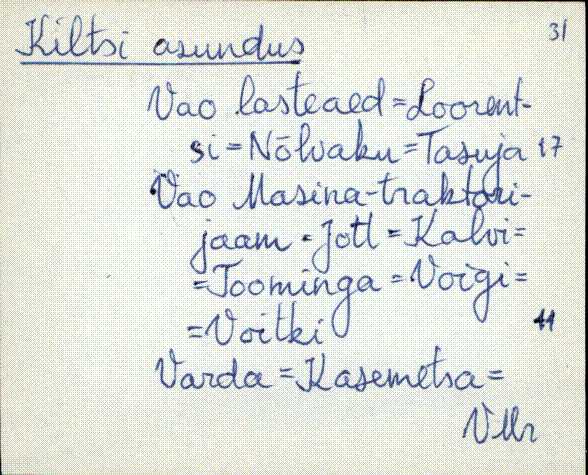 31
Kiltsi asundus
Vao lasteaed = Loorent-
si = Nõlvaku = Tasuja 17
Vao Masina-traktori-
jaam = Jotl = Kalvi =
= Toominga = Voigi =
= Voitki 11
Varda = Kasemetsa =
VMr